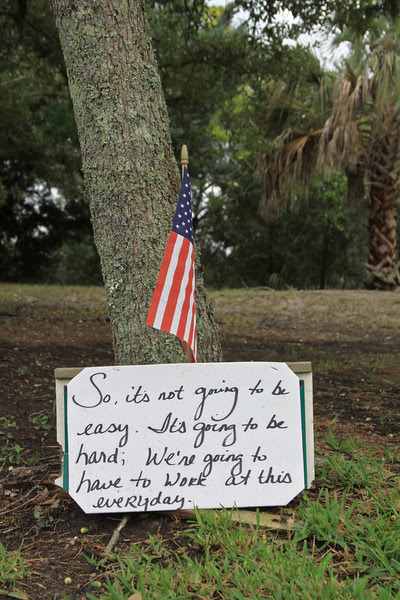 So, it's not going to be
easy. It's going to be
hard; We're going to
have to work at this
everyday.